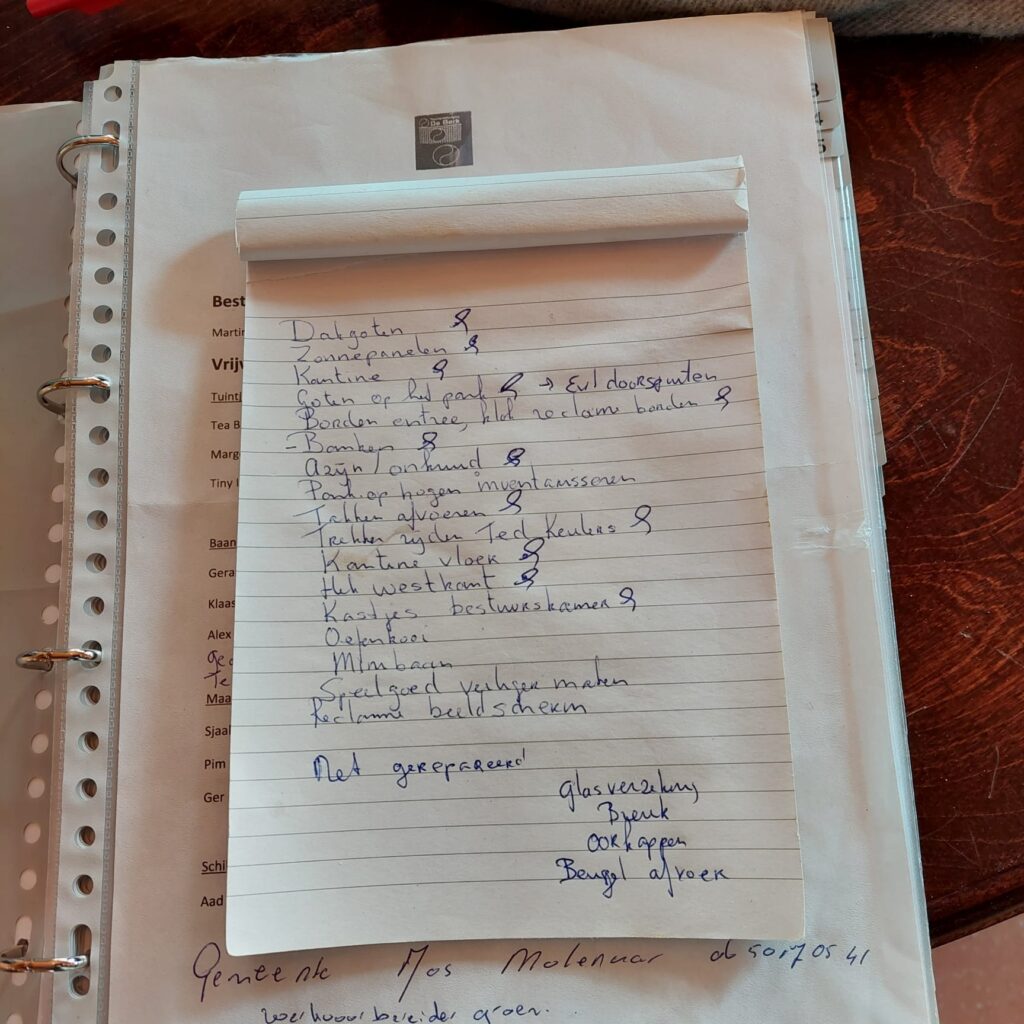 De Berk
Best
Martin
Vrijw
Tuint
Tea B
Marg
Tiny
Baan
Gera
Klaas
Alex
Ge
Te
Maa
Sjaal
Pim
Ger
Schil
Aad
Dakgoten
Zonnepanelen
Kantine
Goten op het park → Evt doorspuiten
Borden entree, reclame borden
- Banken
azijn/onkruid
Park op hogen inventarisseren
Takken afvoeren
Trekker rijden Ted Keulers
Kantine vloer
Hek westkant
Kastjes bestuurskamer
Oefenkooi
Minibaan
Speelgoed veiliger maken
Reclame beeldscherm
Net gerepareerd
Glasverzekering
Breuk
oorkappen
Beugel afvoer
Gemeente Mos Molenaar
werkvoorbereider groen.